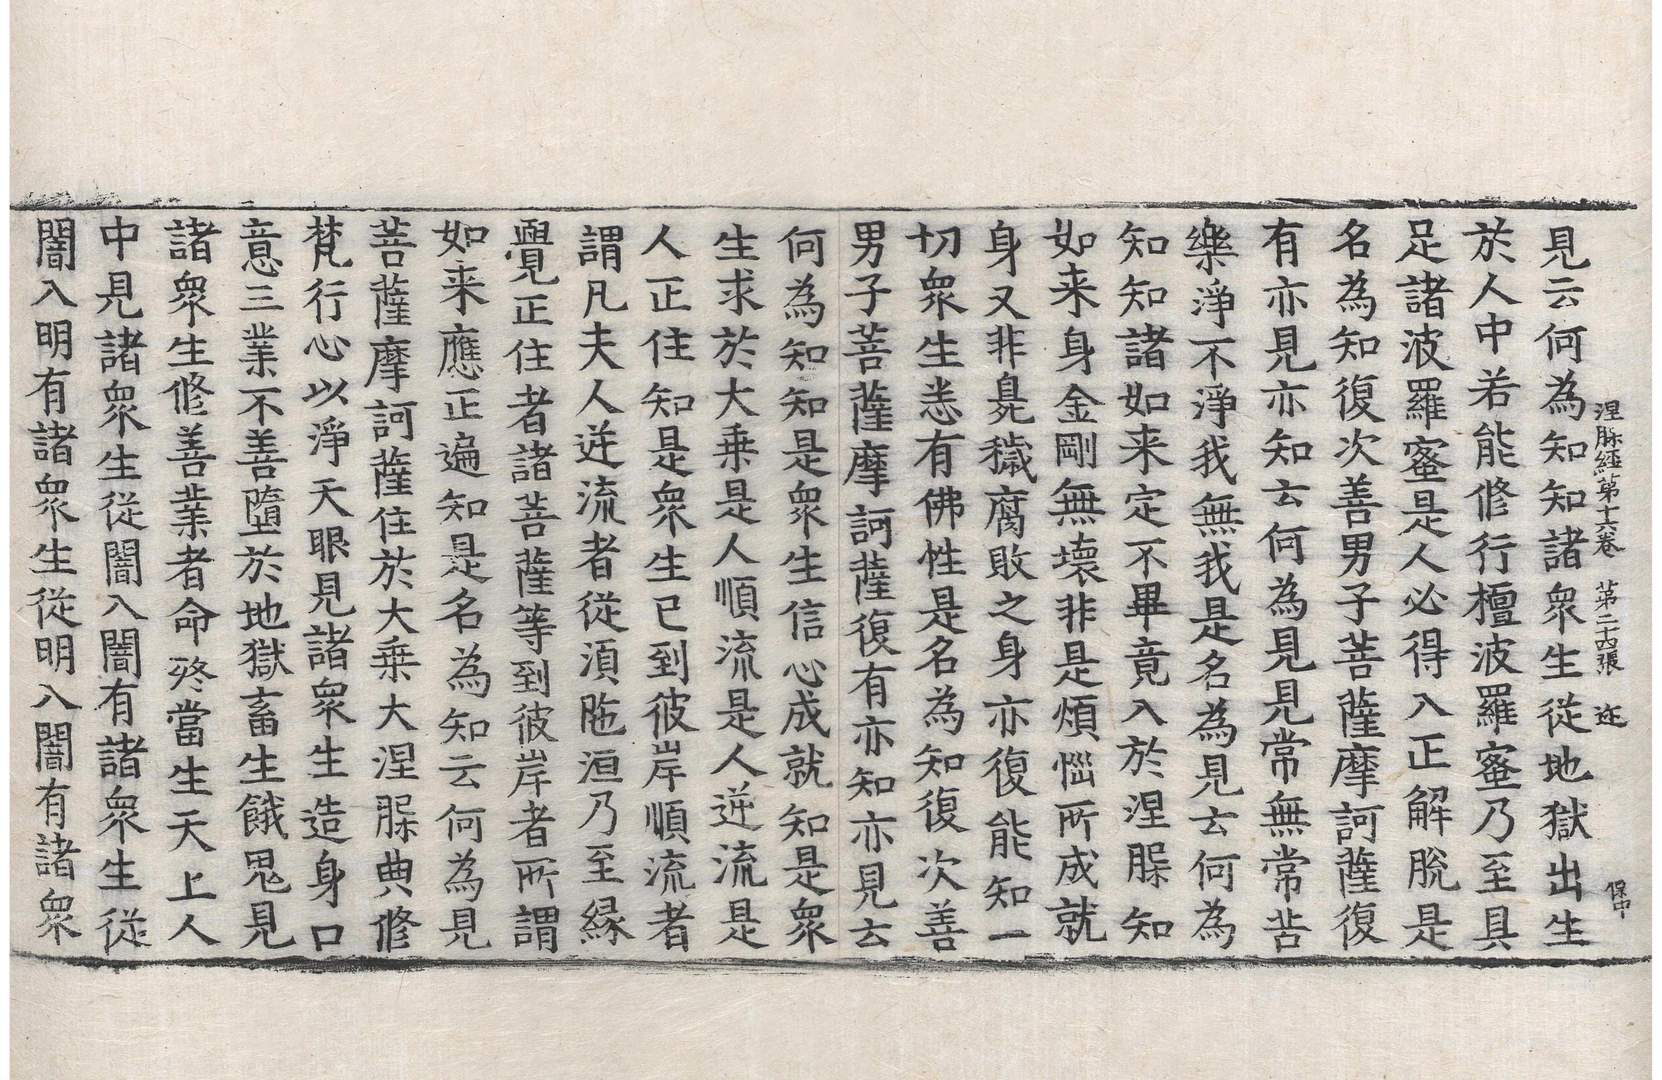 涅槃經第十六卷 第二十四張 迹 保中
見云何為知知諸衆生從地獄出生
於人中若能修行檀波羅蜜乃至具
足諸波羅蜜是人必得入正解脫是
名為知復次善男子菩薩摩訶薩復
有亦見亦知云何為見見常無常苦
樂淨不淨我無我是名為見云何為
知知諸如来定不畢竟入於涅槃知
如来身金剛無壞非是煩惱所成就
身又非臭穢腐敗之身亦復能知一
切衆生悉有佛性是名為知復次善
男子菩薩摩訶薩復有亦知亦見云
何為知知是衆生信心成就知是衆
生求於大乘是人順流是人逆流是
人正住知是衆生已到彼岸順流者
謂凡夫人逆流者從須陁洹乃至縁
覺正住者諸菩薩等到彼岸者所謂
如来應正遍知是名為知云何為見
菩薩摩訶薩住於大乘大涅槃典修
梵行心以淨天眼見諸衆生造身口
意三業不善墮於地獄畜生餓鬼見
諸衆生修善業者命終當生天上人
中見諸衆生從闇入闇有諸衆生從
闇入明有諸衆生從明入闇有諸衆